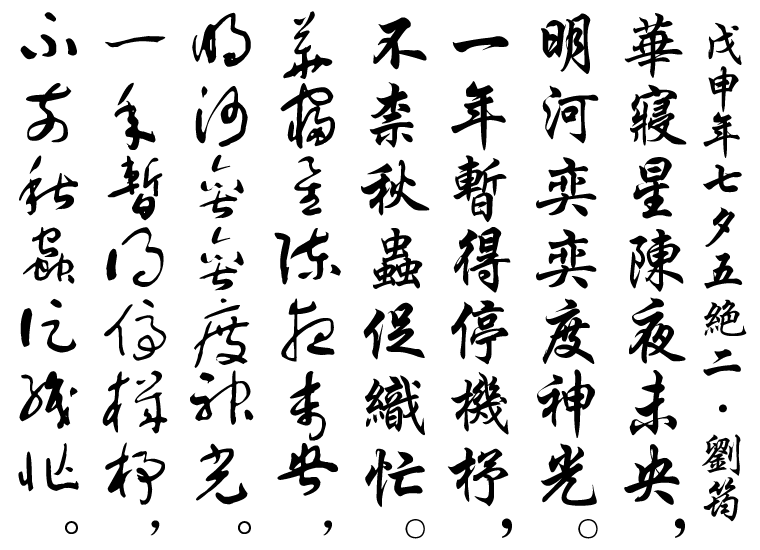 戊申年七夕五絶二・劉筠
華寢星陳夜未央，
明河奕奕度神光。
一年暫得停機杼，
不柰秋蟲促織忙。
華寢星陳夜未央，
明河奕奕度神光。
一年暫得停機杼，
不柰秋蟲促織忙。